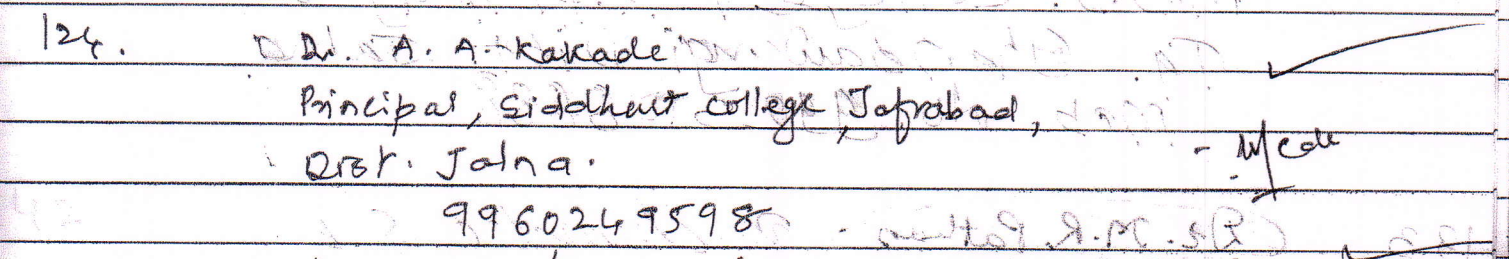 124. Dr. A. A. Kakade
Principal, Siddhart college, Jafrabad,
Dist. Jalna.
9960249598